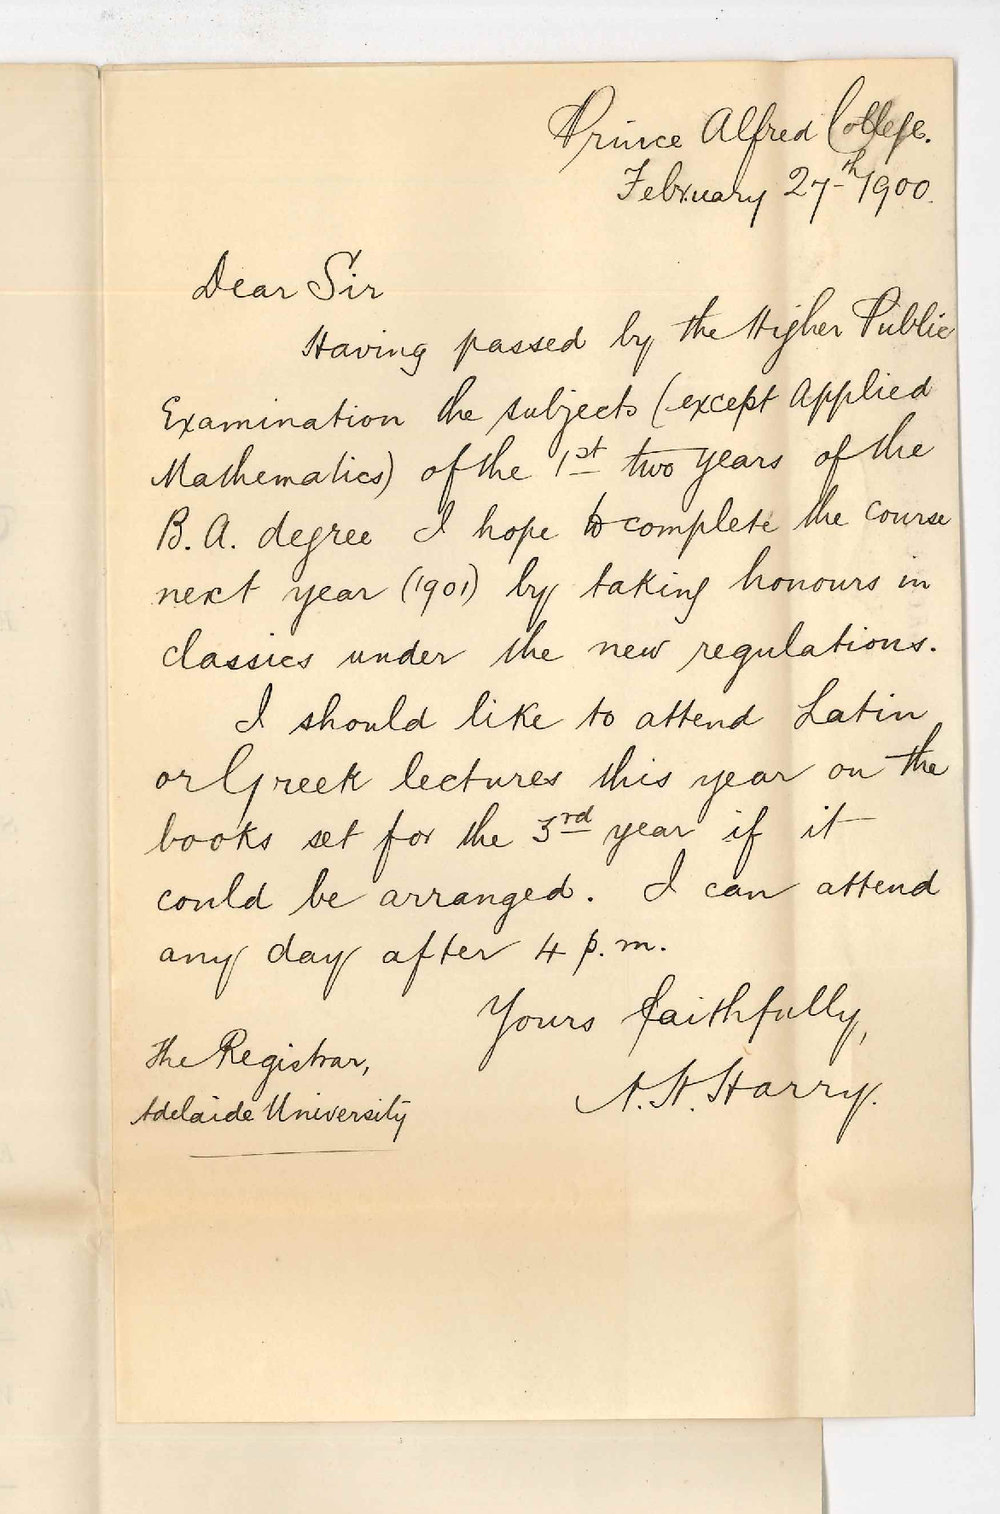 Prince Alfred College.
February 27th 1900.
Dear Sir
Having passed by the Higher Public
Examination the subjects (except Applied
Mathematics) of the 1st two years of the
B.A. degree I hope to complete the course
next year (1901) by taking honours in
classics under the new regulations.
I should like to attend Latin
or Greek lectures this year on the
books set for the 3rd year if it
could be arranged. I can attend
any day after 4 p.m.
Yours faithfully,
A. H. Harry.
The Registrar,
Adelaide University